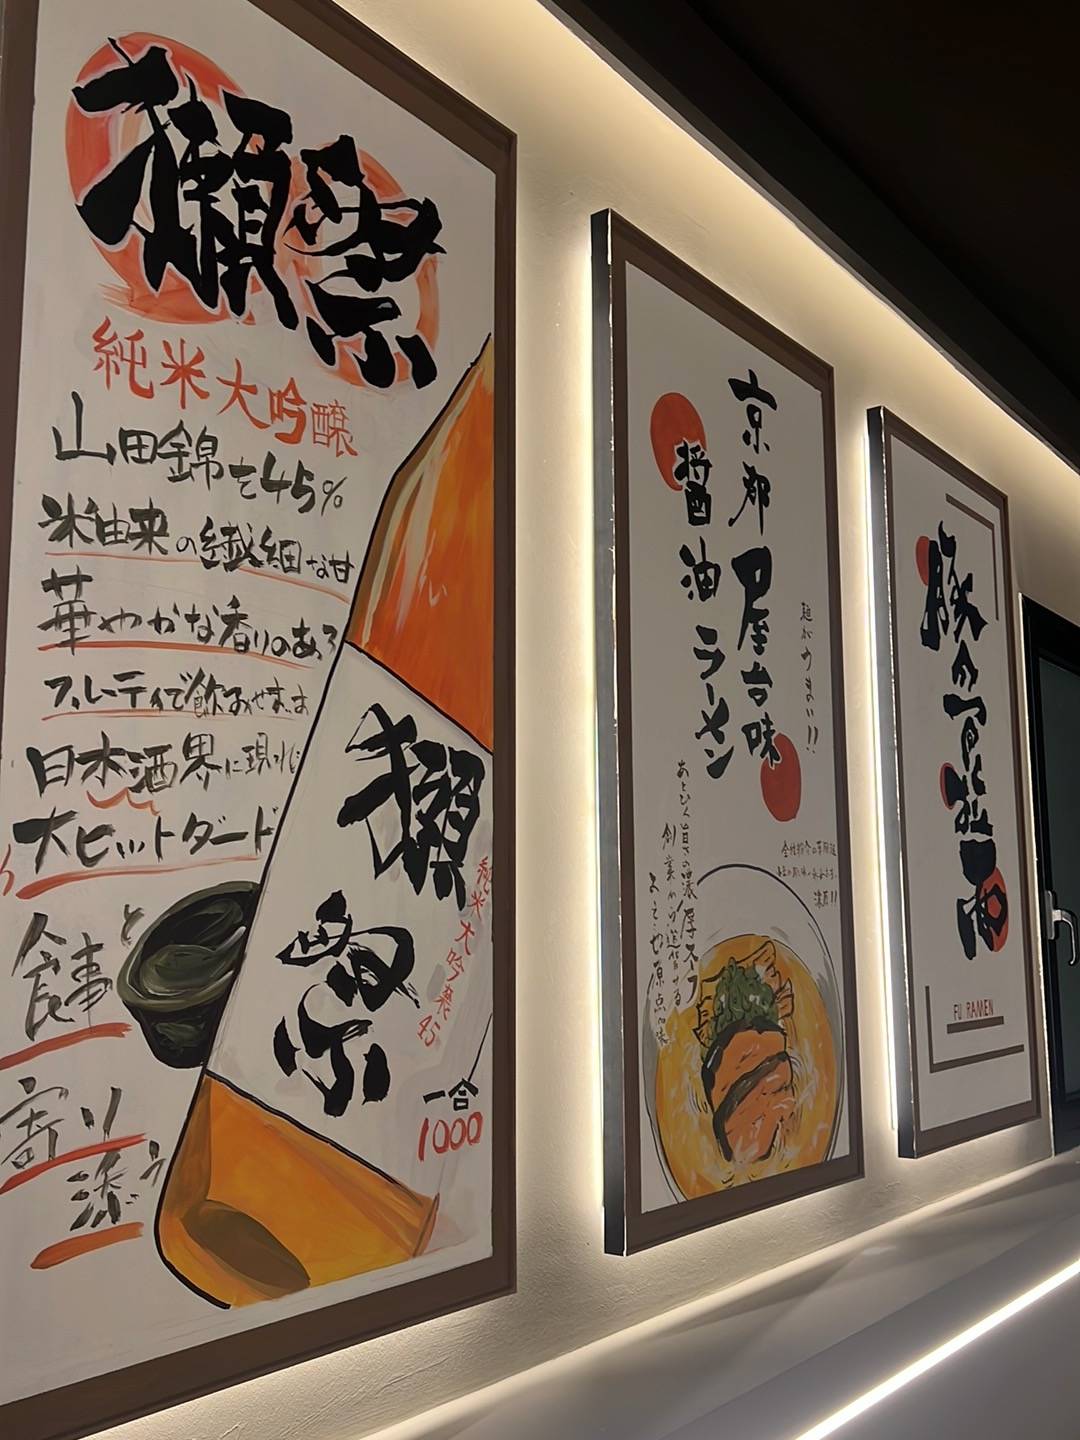 獺祭
純米大吟醸
山田錦を45%
米由来の繊細な甘
華やかな香りのある
フルーティで飲みやすさは
日本酒界に現れし
大ヒットダード
食事と
寄り
添う
獺祭
純米大吟醸 45
一合
1000
京都屋台味
醤油ラーメン
麺がうまい!!
あとひく旨さの濃厚スープ
創業から追い続ける
よってや原点の味
FU RAMEN